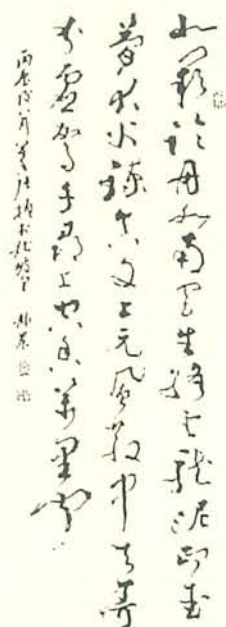 北闕臨丹水南宮生絳雲龍泥印玉
簡大火煉真文上元風散中天歌
靈駕千尋上空香萬里聞
丙辰